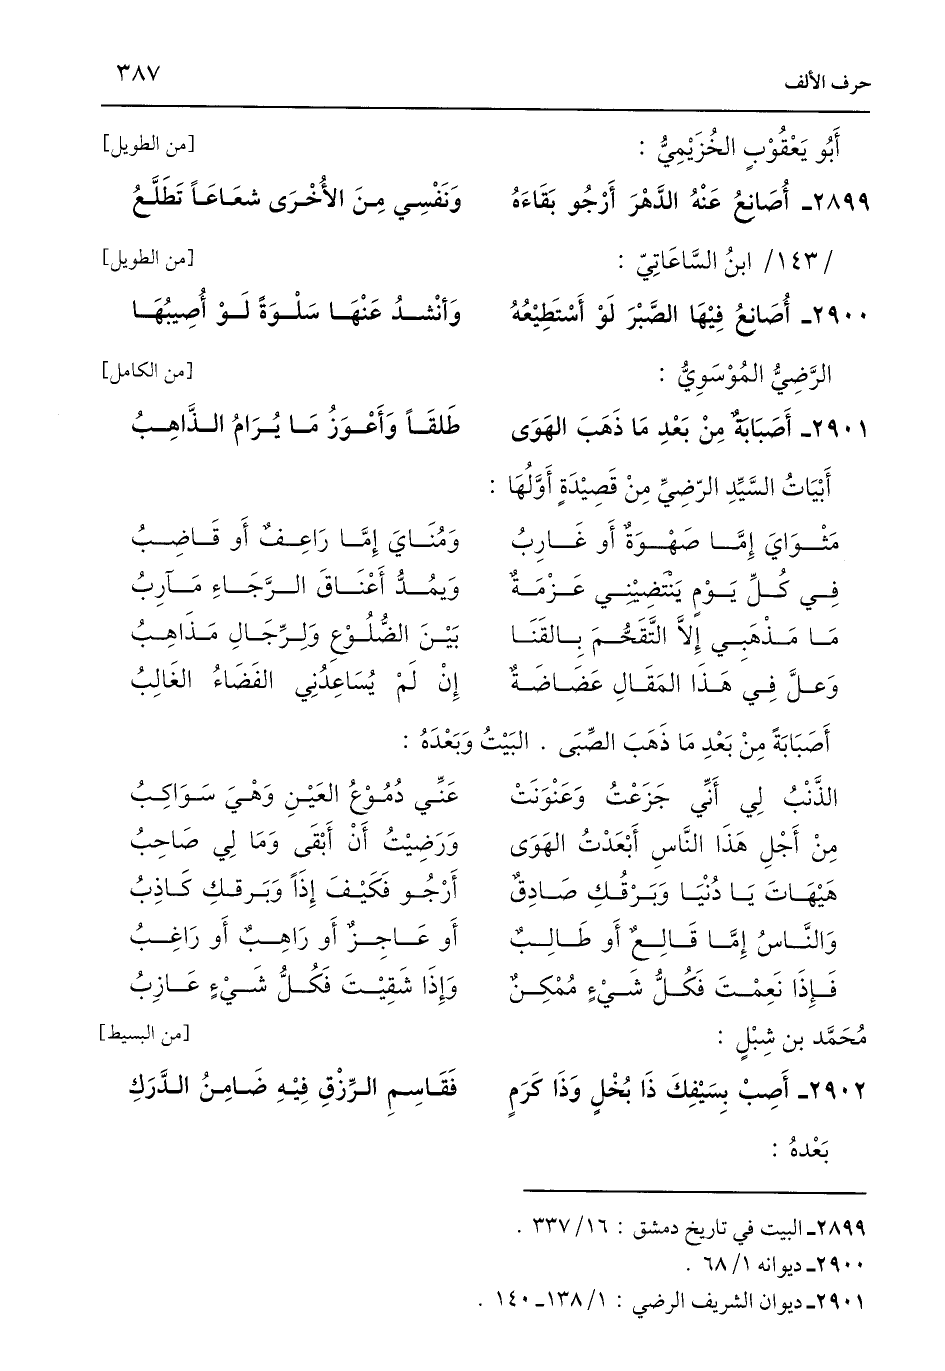 حرف الألف ٣٨٧
أَبُو يَعْقُوْبٍ الخُزَيْمِيُّ : [من الطويل]
٢٨٩٩ـ أُصَانِعُ عَنْهُ الدَّهْرَ أَرْجُو بَقَاءَهُ وَنَفْسِي مِنَ الأُخْرَى شعَاعَاً تَطَلَّعُ
/١٤٣/ ابنُ السَّاعَاتِيّ : [من الطويل]
٢٩٠٠ـ أُصَانِعُ فِيْهَا الصَّبْرَ لَوْ أَسْتَطِيْعُهُ وَأَنْشدُ عَنْهَا سَلْوَةً لَوْ أُصِيبُهَا
الرَّضِيُّ المُوْسَوِيُّ : [من الكامل]
٢٩٠١ـ أَصَبَابَةٌ مِنْ بَعْدِ مَا ذَهَبَ الهَوَى طَلقَاً وَأَعْوَزُ مَا يُرَامُ الذَّاهِبُ
أَبْيَاتُ السَّيِّدِ الرّضِيِّ مِنْ قَصِيْدَةٍ أَوَّلُهَا :
مَثْوَايَ إِمَّا صَهْوَةٌ أو غَارِبُ وَمُنَايَ إِمَّا رَاعِفٌ أو قَاضِبُ
فِي كُلِّ يَوْمٍ يَنْتَضِيْنِي عَزْمَةٌ وَيَمُدُّ أَعْنَاقَ الرَّجَاءِ مَآرِبُ
مَا مَذْهَبِي إِلاَّ التَّقَحُّمَ بِالقَنَا بَيْنَ الضُّلُوْعِ وَلِرِّجَالِ مَذَاهِبُ
وَعلَّ فِي هَذَا المَقَالِ غَضَاضَةٌ إِنْ لَمْ يُسَاعِدُنِي القَضَاءُ الغَالِبُ
أَصَبَابَةً مِنْ بَعْدِ مَا ذَهَبَ الصِّبَى . البَيْتُ وَبَعْدَهُ :
الذَّنْبُ لِي أَنِّي جَزَعْتُ وَعَنْوَنَتْ عَنِّي دُمُوْعُ العَيْنِ وَهْيَ سَوَاكِبُ
مِنْ أَجْلِ هَذَا النَّاسِ أَبْعَدْتُ الهَوَى وَرَضِيْتُ أَنْ أَبْقَى وَمَا لِي صَاحِبُ
هَيْهَاتَ يَا دُنْيَا وَبَرْقُكِ صَادِقٌ أَرْجُو فَكَيْفَ إِذَاً وَبَرقكِ كَاذِبُ
وَالنَّاسُ إِمَّا قَالِعٌ أو طَالِبٌ أو عَاجِزٌ أو رَاهِبٌ أو رَاغِبُ
فَإِذَا نَعِمْتَ فَكُلُّ شَيْءٍ مُمْكِنٌ وَإِذَا شَقِيْتَ فَكُلُّ شَيْءٍ عَازِبُ
مُحَمَّد بن شِبْلٍ : [من البسيط]
٢٩٠٢ـ أَصِبْ بِسَيْفِكَ ذَا بُخْلٍ وَذَا كَرَمٍ فَقَاسِمِ الرِّزْقِ فِيْهِ ضَامِنُ الدَّرَكِ
بَعْدهُ :
٢٨٩٩ـ البيت في تاريخ دمشق : ٣٣٧/١٦ .
٢٩٠٠ـ ديوانه ٦٨/١ .
٢٩٠١ـ ديوان الشريف الرضي : ١٣٨/١ـ١٤٠ .